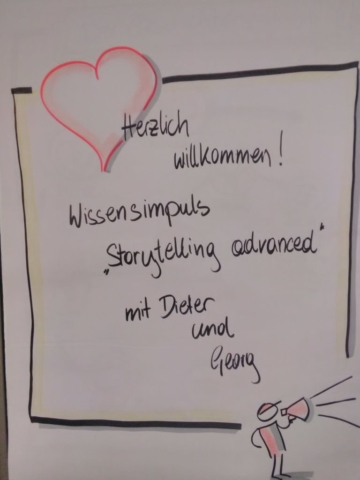 Herzlich
willkommen!
Wissensimpuls
„Storytelling advanced"
mit Dieter
und
Georg